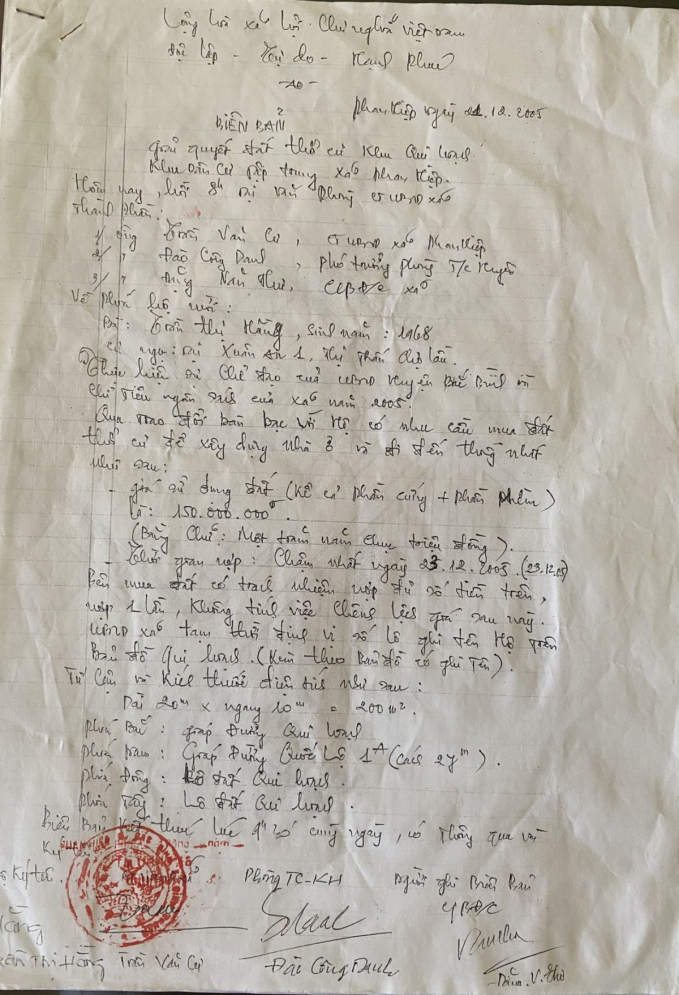 Cộng hòa xã hội chủ nghĩa việt nam
Độc lập - Tự do - Hạnh Phúc
Phan Hiệp ngày 21.12.2005
BIÊN BẢN
giải quyết đất thổ cư Khu Qui hoạch
Khu Dân Cư tập trung xã Phan Hiệp.
Hôm nay, hồi 8h tại văn phòng UBND xã
Thành phần:
1/ Ông Trần Văn Cư, CT UBND xã Phan Hiệp
2/ " Đào Công Danh, phó trưởng phòng T/c huyện
3/ " CBĐ/c xã
Về phía hộ mời:
Bà: Trần Thị Hằng, sinh năm: 1968
cư ngụ: tại Xuân An 1, Thị Trấn chợ lầu.
Thực hiện sự chỉ đạo của UBND huyện Bắc Bình và
chỉ tiêu ngân sách của xã năm 2005.
Qua trao đổi bàn bạc với Hộ có nhu cầu mua đất
thổ cư để xây dựng nhà ở và đi đến thống nhất
như sau:
- giá sử dụng đất (Kể cả phần cứng + phần mềm)
là: 150.000.000đ.
(Bằng chữ: Một trăm năm chục triệu đồng).
- Thời gian nộp: Chậm nhất ngày 23.12.2005. (23.12.05)
Bên mua đất có trách nhiệm nộp đủ số tiền trên,
nộp 1 lần, không tính việc chênh lệch giá sau này.
UBND xã tạm thời định vị số lô ghi tên Hộ trên
Bản đồ Qui hoạch. (Kèm theo Bản đồ có ghi Tên).
Tứ Cận và kích thước diện tích như sau:
Dài 20m x ngang 10m = 200m2.
phía Bắc: giáp Đường Qui hoạch
phía Nam: Giáp Đường Quốc Lộ 1A (cách 27m).
phía Đông: Lô đất Qui hoạch.
phía Tây: Lô đất Qui hoạch.
Biên Bản kết thúc lúc 9h 30 cùng ngày, có thông qua và
Ký
Ký tên Phòng TC-KH Người ghi Biên Bản
CBĐC
Hằng
Trần Thị Hằng Trần Văn Cư Đào Công Danh